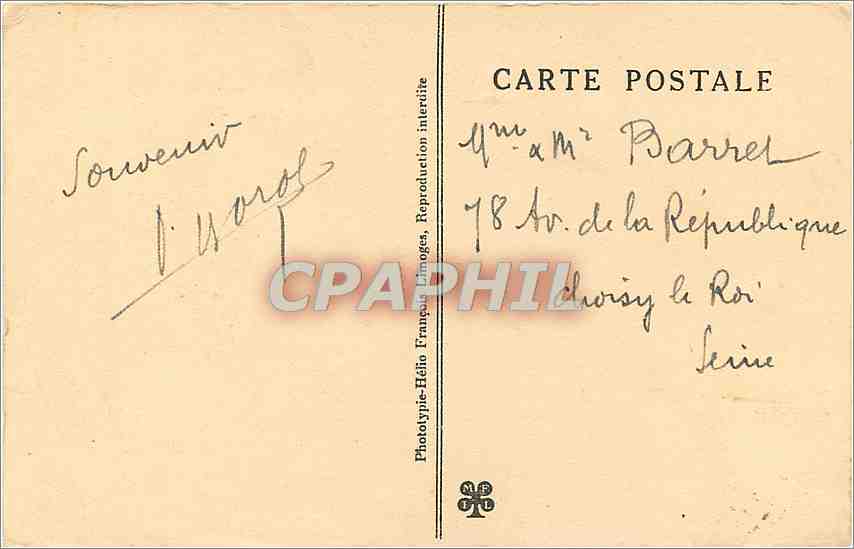 Souvenir
Phototypie-Hélio François Limoges, Reproduction interdite
CARTE POSTALE
Mme & Mr Barret
78 Av. de la République
Choisy le Roi
Seine
CPAPHIL
M F
I L